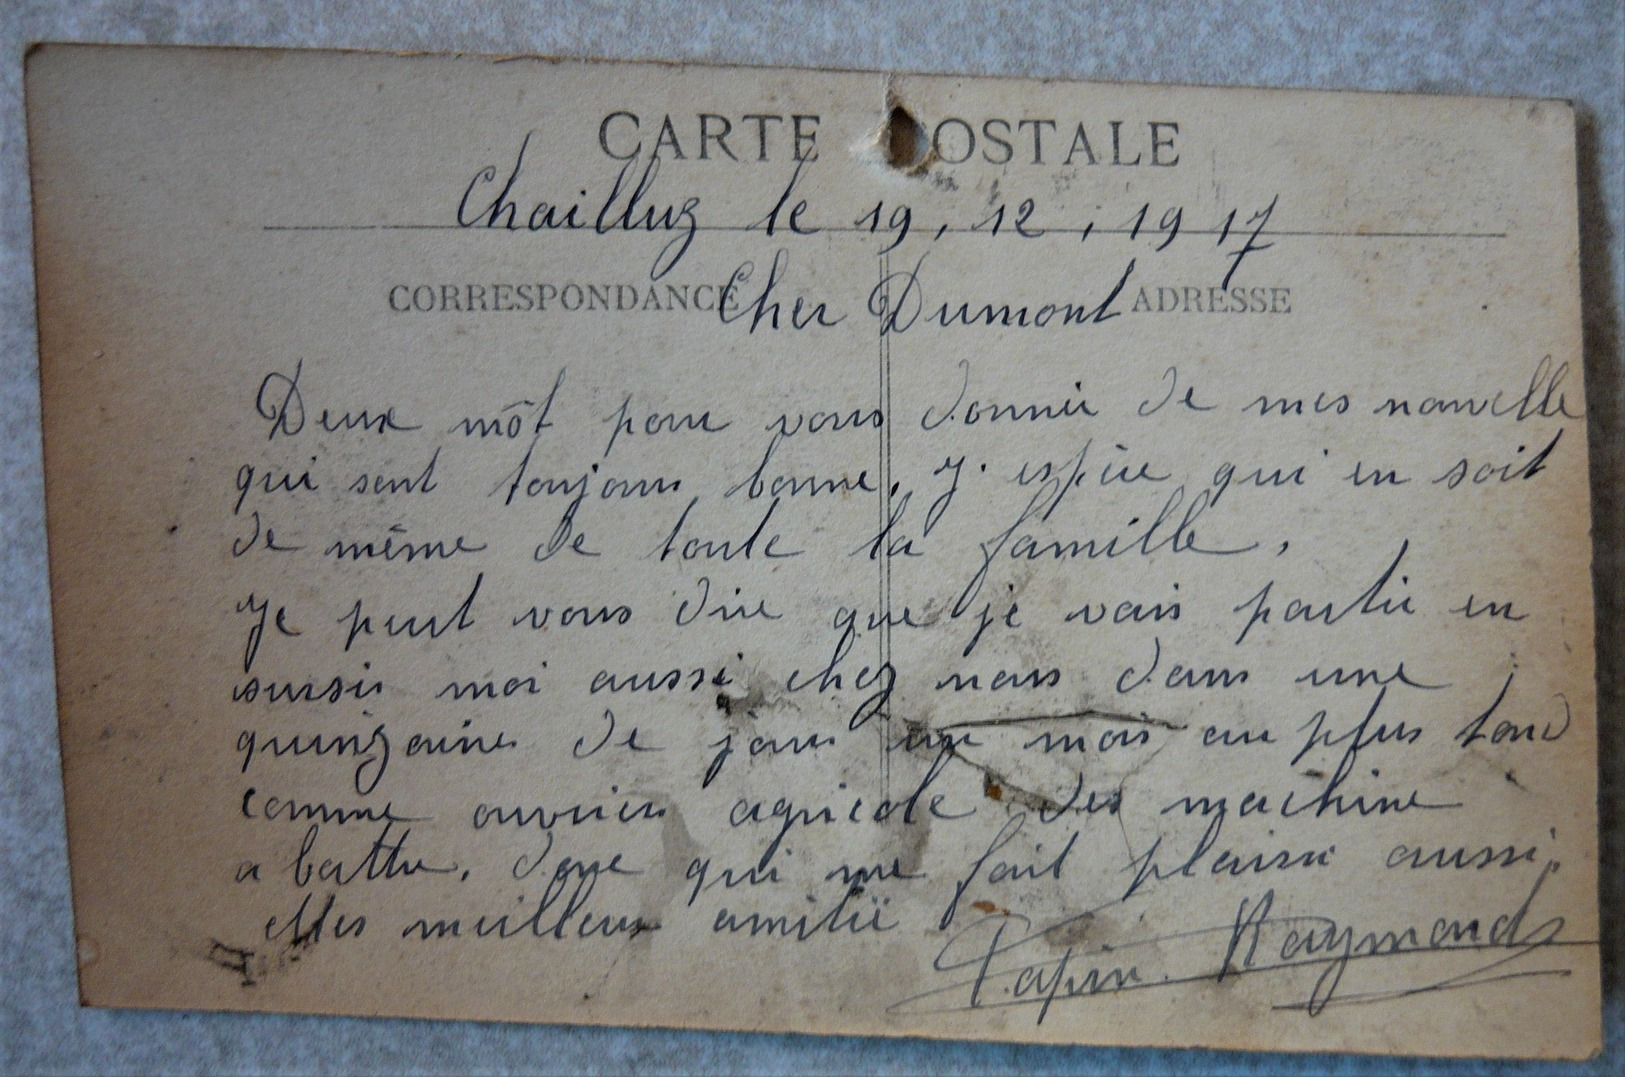 CARTE POSTALE
Chailluz le 19, 12, 1917
CORRESPONDANCE ADRESSE
Cher Dumont
Deux môt pour vous donnée de mes nouvelle
qui sont toujour bonne, J'espère qui en soit
de même de toute la famille.
Je peut vous dire que je vais partir en
sursis moi aussi chez nous dans une
quinzaine de jour un mois au plus tard
comme ouvrier agricole des machine
a battre, donc qui me fait plaisir aussi,
Mes meilleur amitié
Papin. Raymond